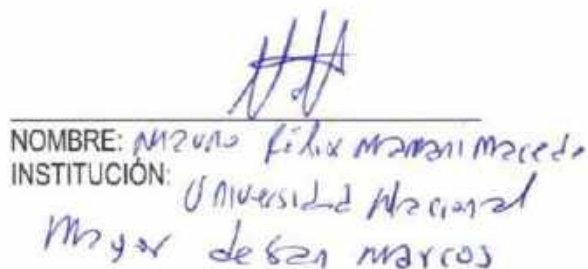 NOMBRE: Mauro Félix Mamani Macedo
INSTITUCIÓN:
Universidad Nacional
Mayor de San Marcos